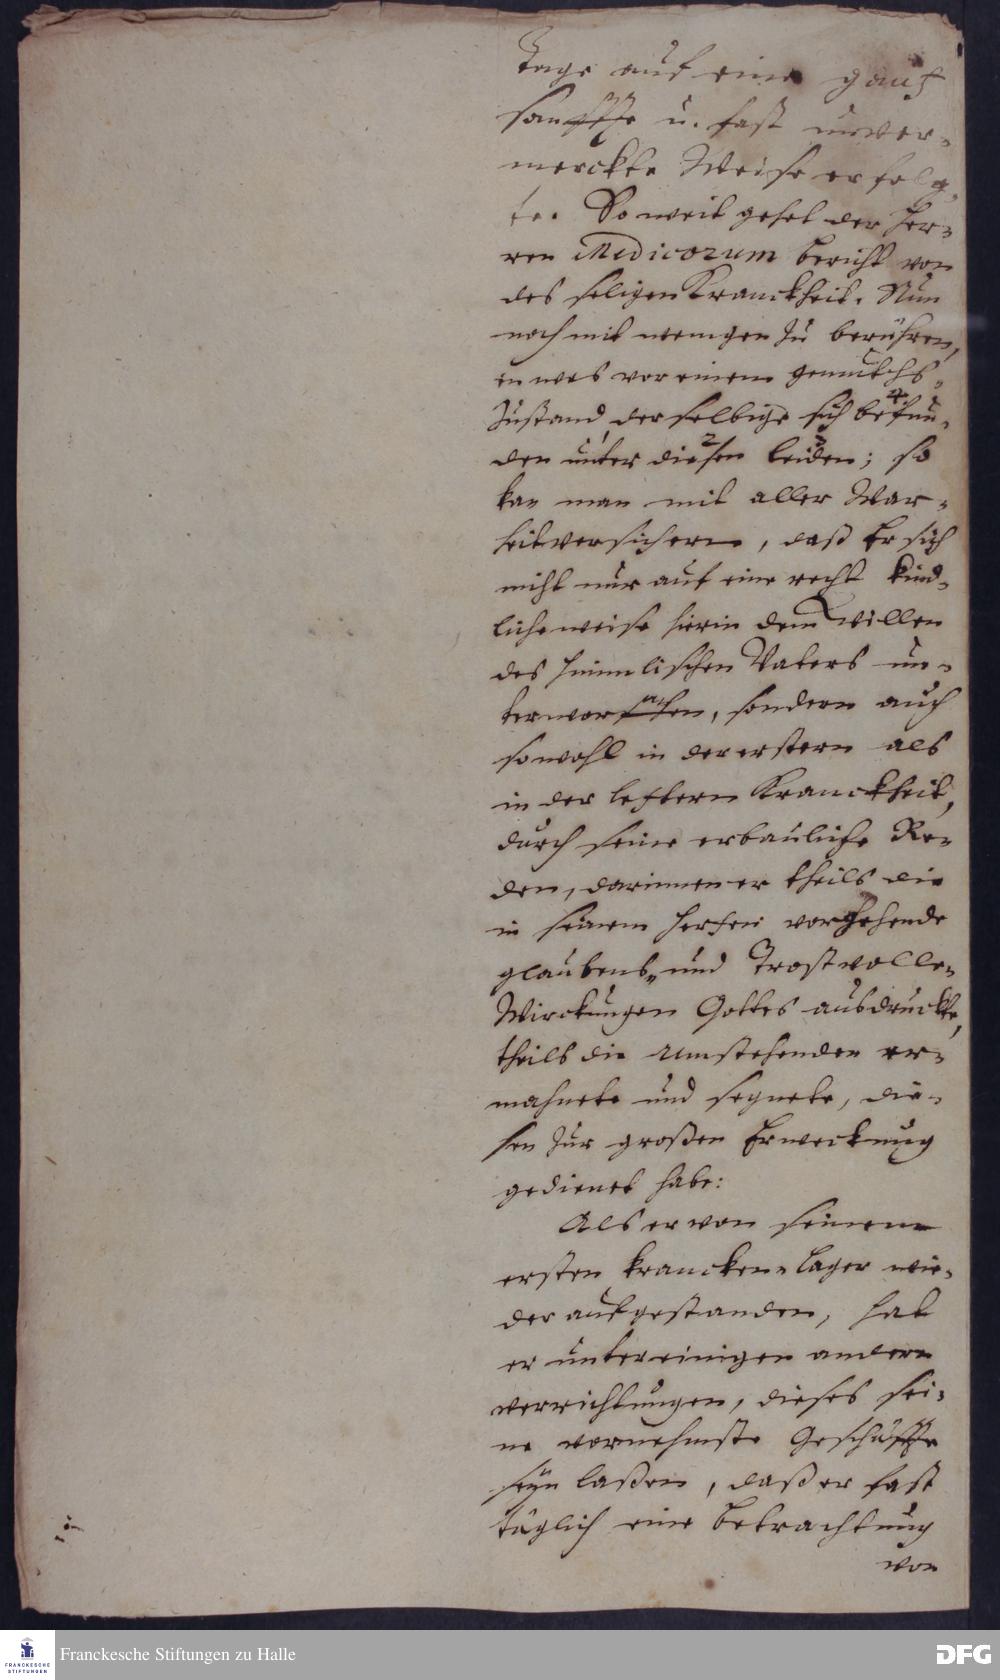 Tage auf eine gantz
sanffte u. fast unver-
merckte Weise erfolg-
te. So weit gehet der Her-
ren Medicorum bericht von
des seligen Kranckheit. Nun
noch mit wenigen zu berühren,
in was vor einem gemüths-
Zustand derselbige sich befun-
den unter diesen leiden; so
kan man mit aller War-
heit versichern, daß Er sich
nicht nur auf eine recht kind-
liche weise hierin dem Willen
des himmlischen Vaters un-
terworffen, sondern auch
sowohl in der erstern als
in der letztern Kranckheit,
durch seine erbauliche Re-
den, darinnen er theils die
in seinem hertzen vorgehende
glaubens- und Trostvolle
Wirckungen Gottes ausdruckte,
theils die Umstehenden er-
mahnete und segnete, die-
sen zur großen Erweckung
gedienet habe:
Als er von seinem
ersten krancken-Lager wie-
der aufgestanden, hat
er unter einigen andern
verrichtungen, dieses sei-
ne vornehmste Geschäffte
seyn laßen, daß er fast
täglich eine betrachtung
von
Franckesche Stiftungen zu Halle
DFG
FRANCKESCHE
STIFTUNGEN